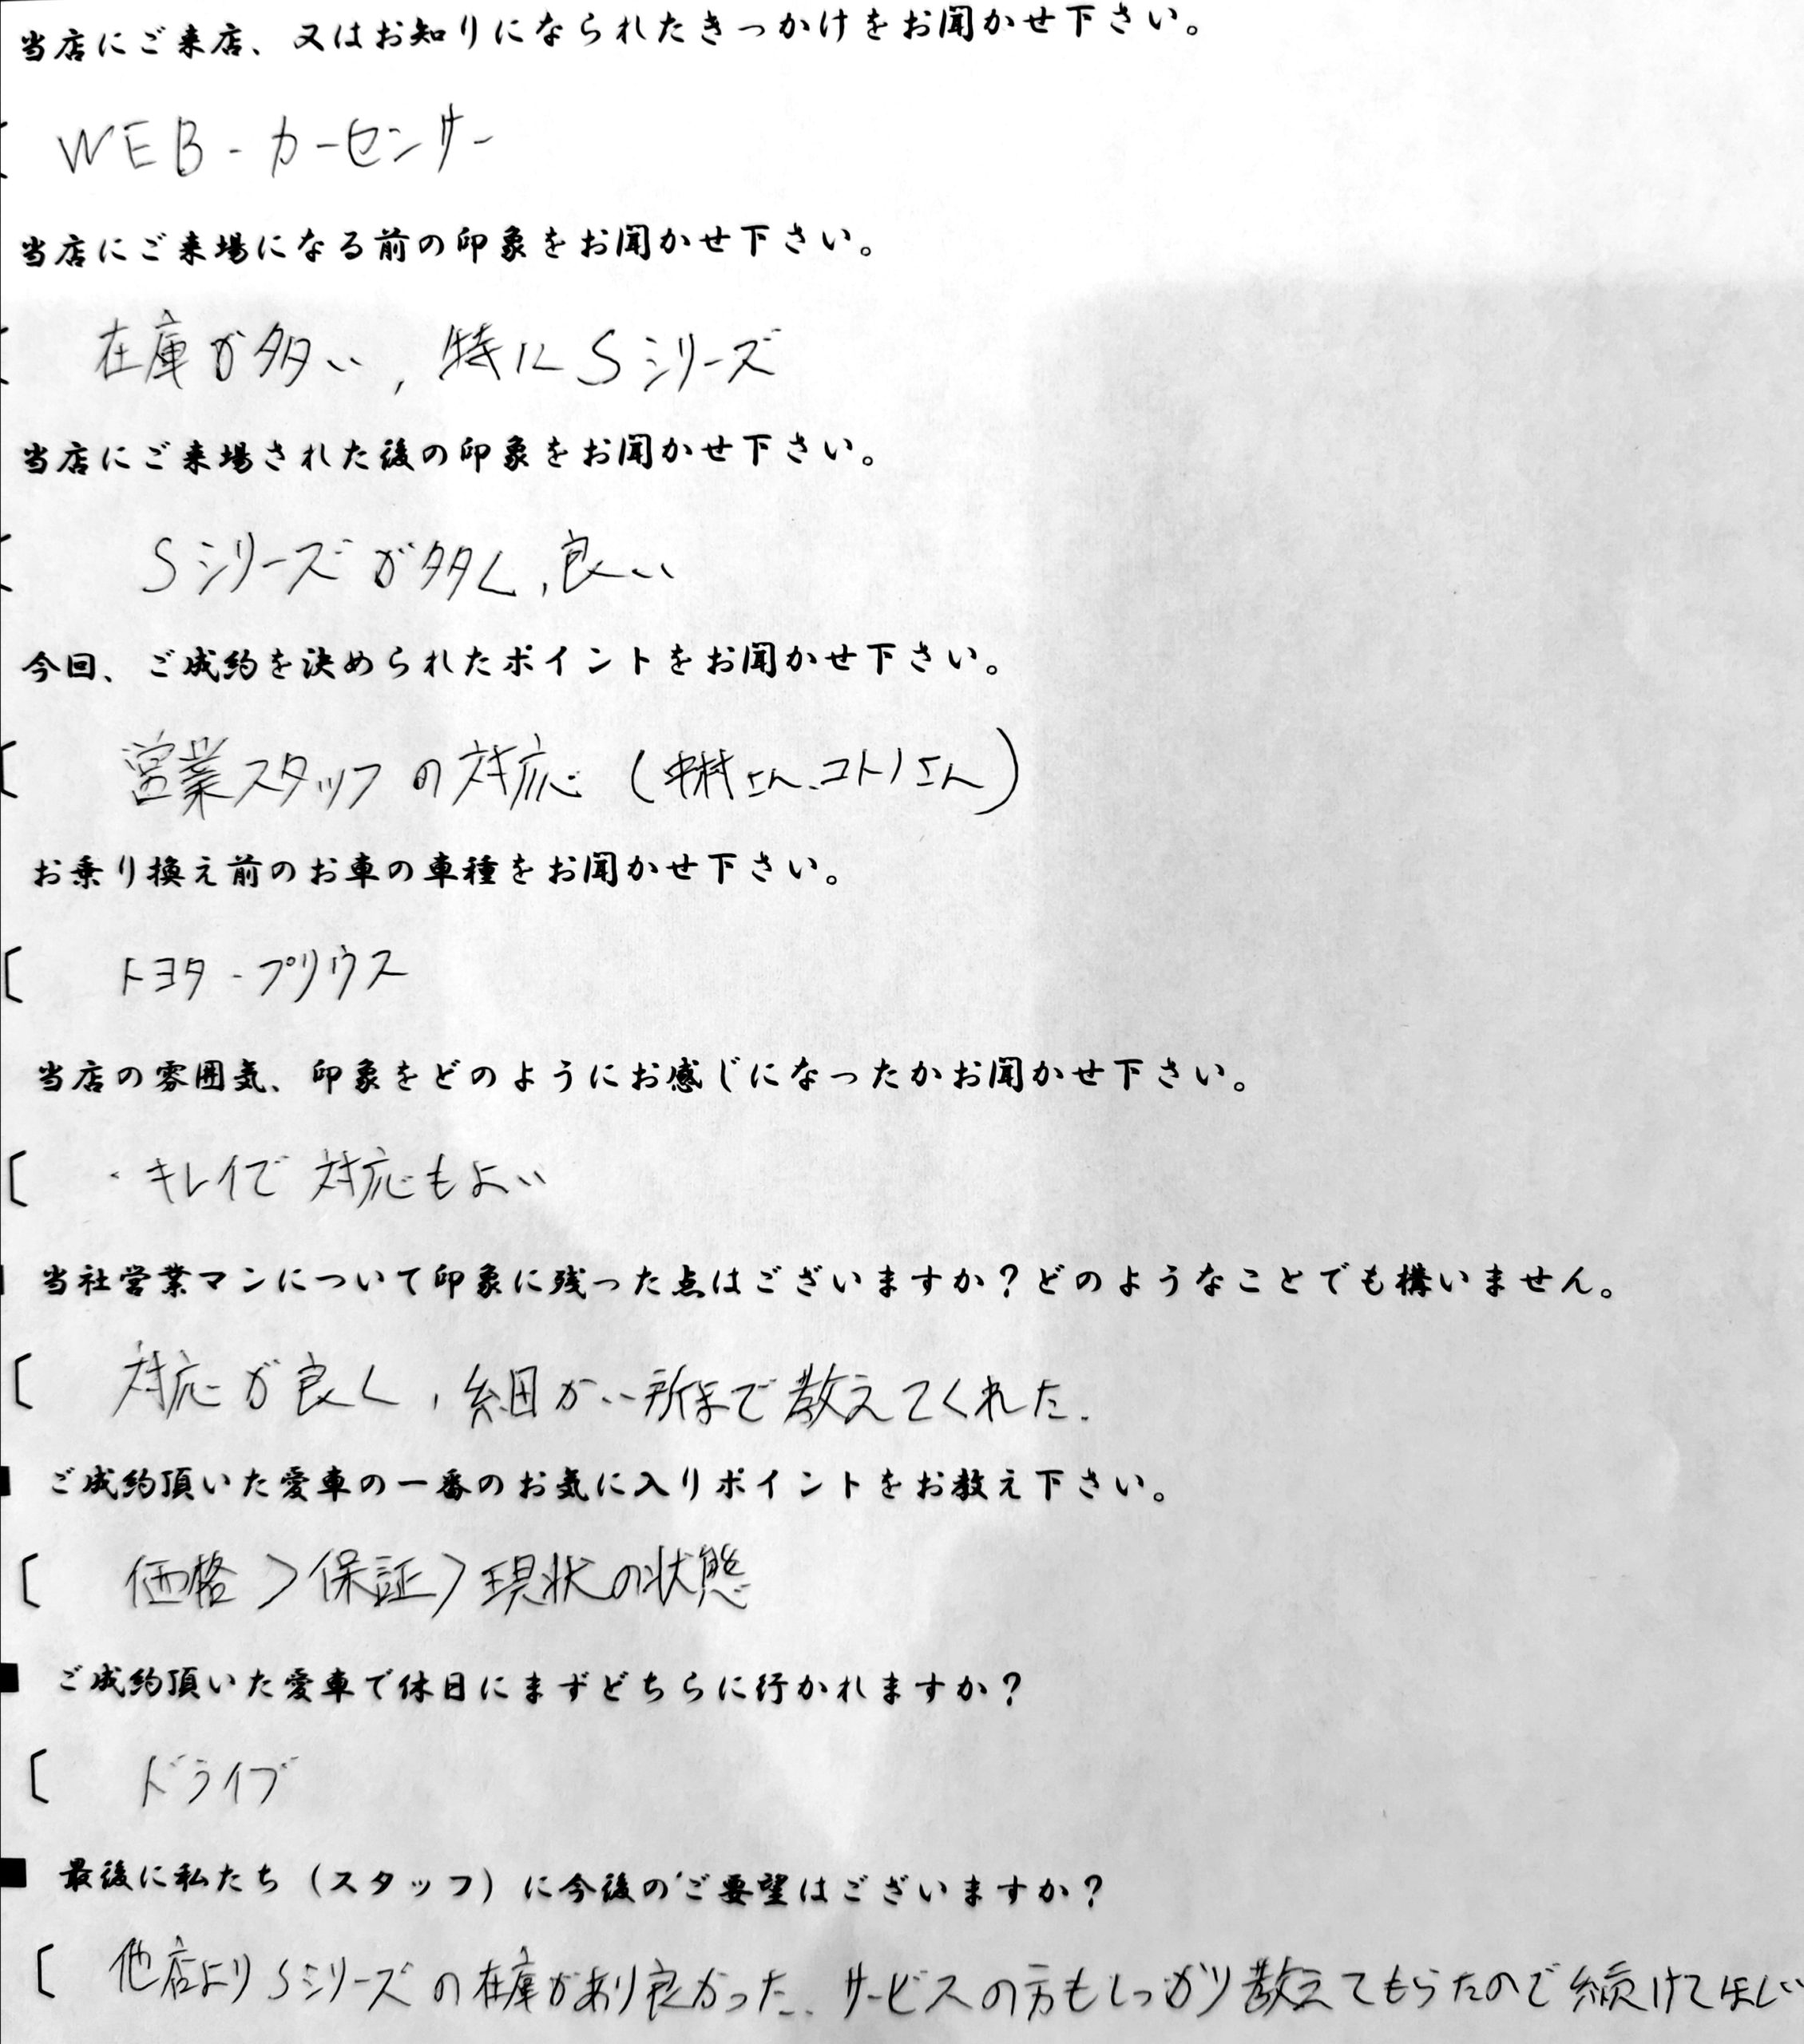 当店にご来店、又はお知りになられたきっかけをお聞かせ下さい。
WEB-カーセンサー
当店にご来場になる前の印象をお聞かせ下さい。
在庫が多い, 特にSシリーズ
当店にご来場された後の印象をお聞かせ下さい。
Sシリーズが多く,良い
今回、ご成約を決められたポイントをお聞かせ下さい。
〔 営業スタッフの対応 (中村さん、コトノさん)
お乗り換え前のお車の車種をお聞かせ下さい。
〔 トヨタ-プリウス
当店の雰囲気、印象をどのようにお感じになったかお聞かせ下さい。
〔 ・キレイで対応もよい
当社営業マンについて印象に残った点はございますか?どのようなことでも構いません。
〔 対応が良く,細かい所まで教えてくれた.
■ ご成約頂いた愛車の一番のお気に入りポイントをお教え下さい。
〔 価格>保証>現状の状態
■ ご成約頂いた愛車で休日にまずどちらに行かれますか?
〔 ドライブ
■ 最後に私たち(スタッフ)に今後のご要望はございますか?
〔 他店よりSシリーズの在庫があり良かった. サービスの方もしっかり教えてもらたので続けてほしい